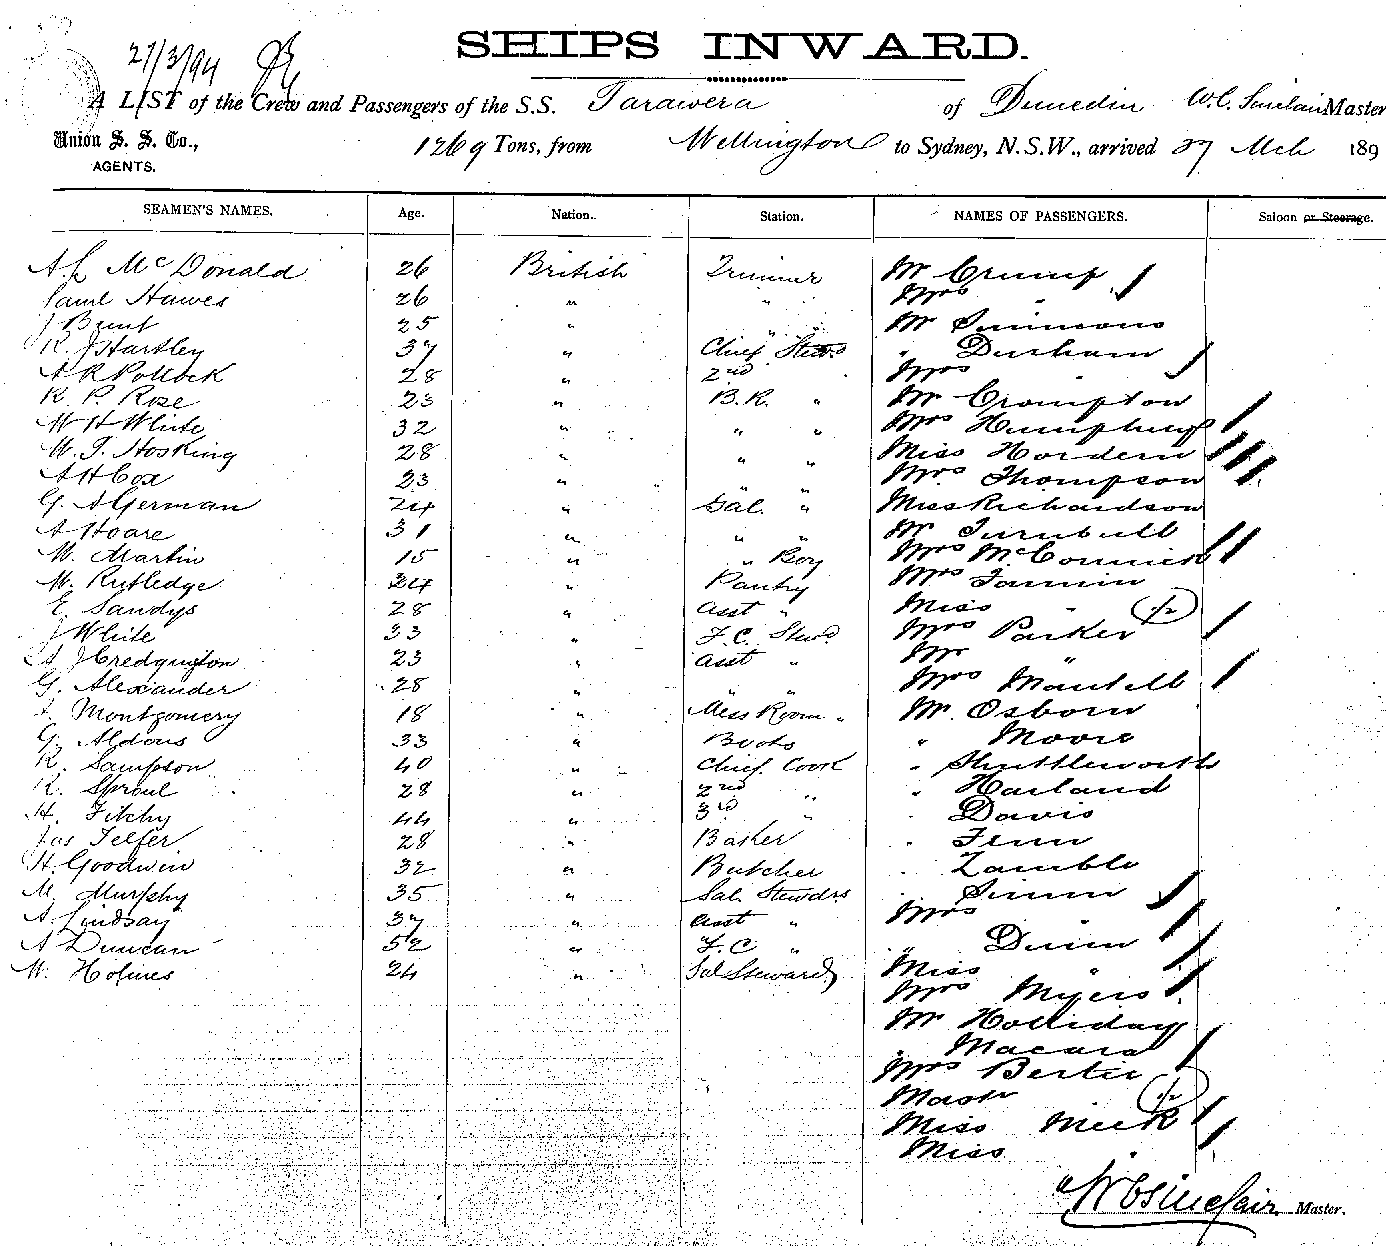 27/3/94
SHIPS INWARD.
A LIST of the Crew and Passengers of the S.S. Tarawera of Dunedin W.C. Sinclair Master
Union S. S. Co., 1269 Tons, from Wellington to Sydney, N.S.W., arrived 27 Mch 189
AGENTS.
SEAMEN'S NAMES. Age. Nation. Station. NAMES OF PASSENGERS. Saloon or Steerage.
A. L McDonald 26 British Trimmer Mr Crump
Saml Hawes 26 " " Mrs "
J Bunt 25 " " " Mr Simmons
R. J Hartley 37 " Chief Stewd " Durham
A R Pollock 28 " 2nd " Mrs "
R. P. Rose 23 " B.R. " Mr Crompton
W H White 32 " " " Mrs Humphrey
W. J. Hosking 28 " " " Miss Hordern
A H Cox 23 " " " Mrs Thompson
G. A German 24 " Sal. " Miss Richardson
A Hoare 31 " " " Mr Turnbull
W. Martin 15 " " Boy Mrs McCormick
W. Rutledge 24 " Pantry Mrs
E. Sandys 28 " Asst " Miss " 1/2
J White 33 " F. C. Stewd Mrs Parker
A J Credginton 23 " Asst " Mr "
G. Alexander 28 " " " Mrs Mantell
A. Montgomery 18 " Mess Room " Mr. Osborn
G. Aldous 33 " Boots " Moore
R. Sampson 40 " Chief Cook " Shuttleworth
R. Sproul 28 " 2nd " " Harland
H. Fitchy 44 " 3rd " " Davis
Jas Telfer 28 " Baker " Fenn
H. Goodwin 32 " Butcher " Zamble
M. Murphy 35 " Sal. Stewdss " Simm
A. Lindsay 37 " Asst " Mrs "
A Duncan 52 " F. C " " Dunn
W. Holmes 24 " Sal Steward Miss "
Mrs Myers
Mr Holliday
" Macara
Mrs Bertie
Mastr 1/2
Miss Meek
Miss
W C Sinclair Master.